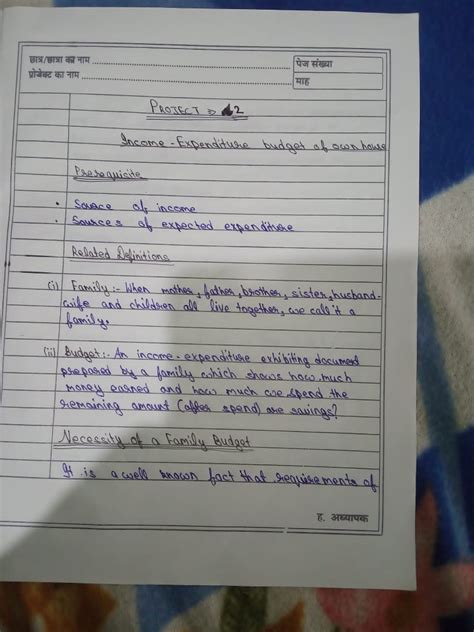 छात्र/छात्रा का नाम
पेज संख्या
प्रोजेक्ट का नाम
माह
PROJECT ⇒ 2
Income - Expenditure budget of own house
Prerequicite
• Source of income
• Sources of expected expenditure
Related Definitions
(i) Family :- When mother, father, brother, sister, husband-
wife and children all live together, we call it a
family.
(ii) Budget :- An income - expenditure exhibiting document
prepared by a family which shows how much
money earned and how much we spend the
remaining amount (after spend) are savings?
Necessity of a Family Budget
It is a well known fact that requirements of
ह. अध्यापक